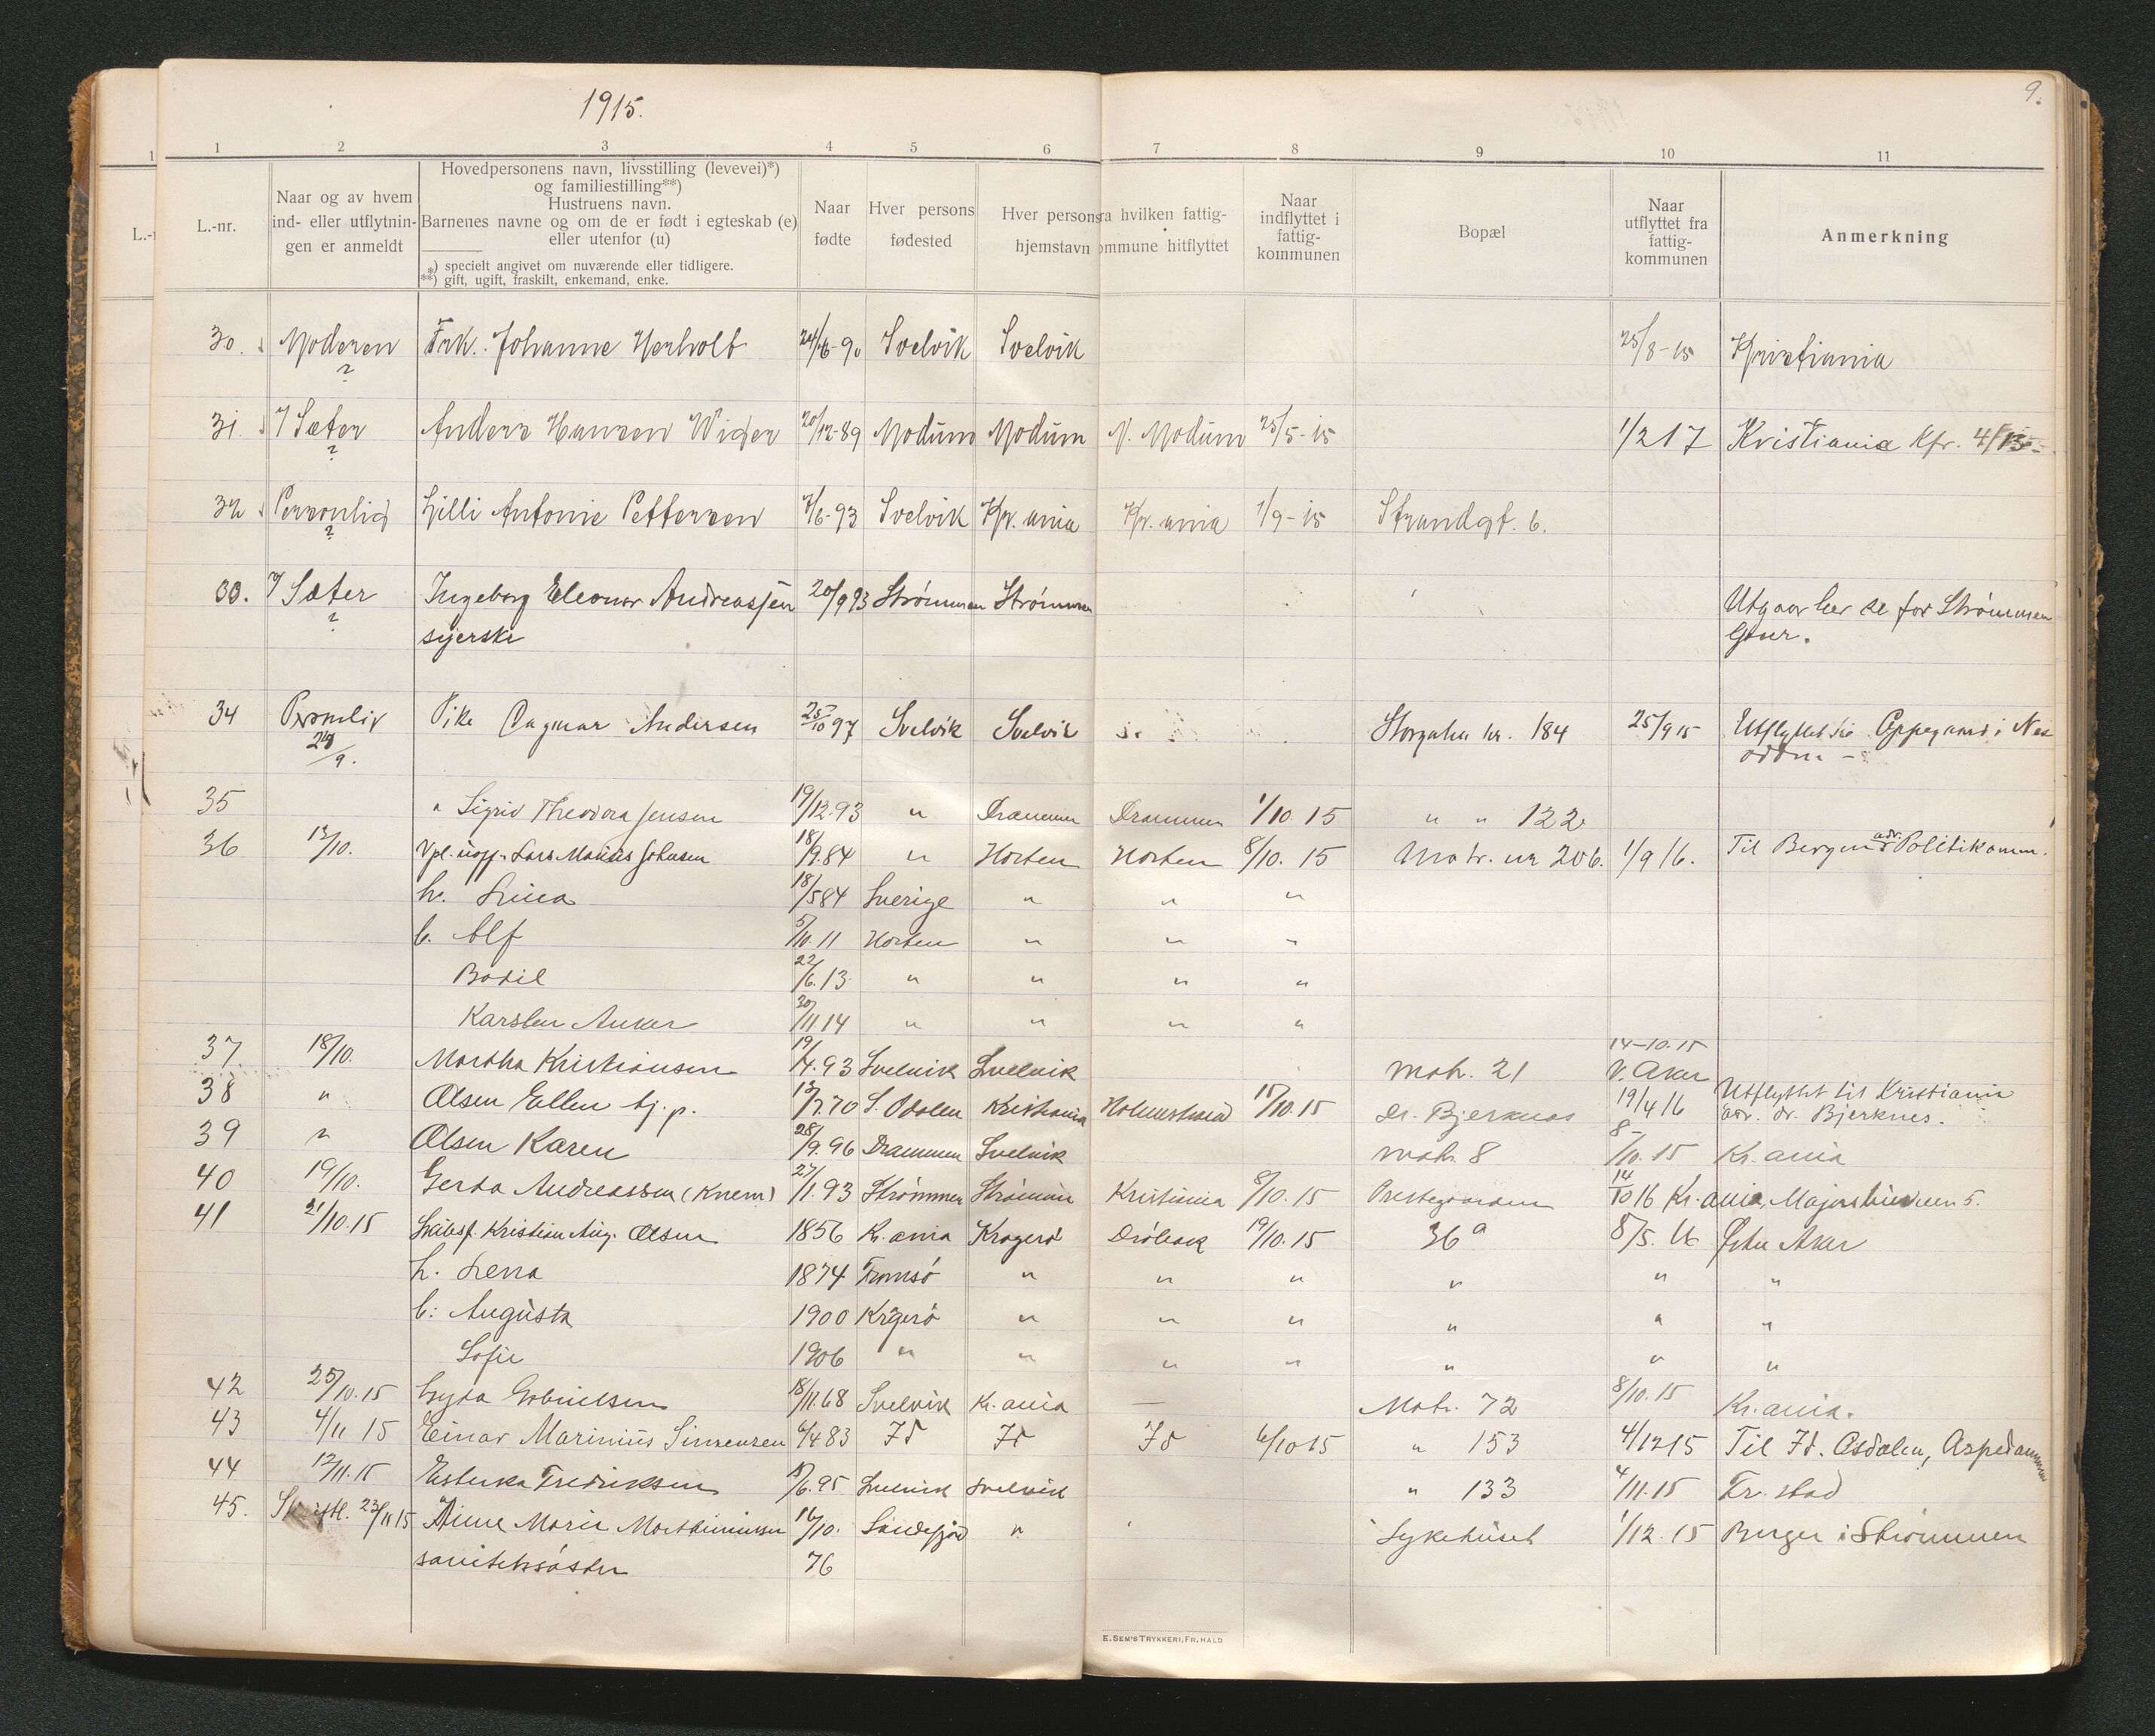 1915.
9.
1 2 3 4 5 6 7 8 9 10 11
1
L.-nr.
Naar og av hvem
ind- eller utflytnin-
gen er anmeldt
Hovedpersonens navn, livsstilling (levevei)*)
og familiestilling**)
Hustruens navn.
Barnenes navne og om de er født i egteskab (e)
eller utenfor (u)
*) specielt angivet om nuværende eller tidligere.
**) gift, ugift, fraskilt, enkemand, enke.
Naar
fødte
Hver persons
fødested
Hver persons
hjemstavn
ra hvilken fattig-
ommune hitflyttet
Naar
indflyttet i
fattig-
kommunen
Bopæl
Naar
utflyttet fra
fattig-
kommunen
Anmerkning
30. Moderen Frk. Johanne Herholt 24/6-90 Svelvik Svelvik 25/8-15 Kristiania
?
31. Sæter Anders Hansen Wiger 20/12-89 Modum Modum N. Modum 25/5-15 1/2 17 Kristiania Kfr. 4/15-
?
32 Personlig Lilli Antonie Pettersen 7/6-93 Svelvik Kr.ania Kr.ania 1/9-15 Strandgt. 6.
?
33. Sæter Ingeborg Eleonor Andreassen 20/9 93 Strømmen Strømmen Utgaar her se for Strømmen
?
syerske
34 Personlig Pike Dagmar Andersen 25/10 97 Svelvik Svelvik Storgaten nr. 184 25/9 15 Utflyttet til Oppegaard i Nes
9. odden -
35 " Sigrid Theodora Jensen 19/12.93 " Drammen Drammen 1/10 15 " " 122
36 12/10. Vpl. uoff. Lars Matius Johnsen 18/9.84 " Horten Horten 8/10. 15 Matr. nr 206. 1/9 16. Til Bergen adr. Politikamm.
h. 18/5 84 Sverige " " "
b. Alf 5/10.11 Horten " " "
Bodil 22/6.13 " " " "
Karsten Anker 30/11 14 " " " "
37. 18/10. Martha Kristiansen 19/4.93 Svelvik Svelvik Matr. 21 14-10.15 V. Aker
38 " Olsen Ellen tj.p. 13/7.70 S. Odalen Kristiania Holmestrand 15/10.15 Dr. Bjerknes 19/4 16 Utflyttet til Kristiania
adr. dr. Bjerknes.
39 " Olsen Karen 28/9.96 Drammen Svelvik Matr. 8 8/10.15 Kr.ania
40 19/10. Gerda Andreassen (Knem) 27/11.93 Strømmen Strømmen Kristiania 8/10.15 Prestegaarden 14/10 16 Kr.ania, Majorstuveien 5.
41 21/10.15 Skibsf. Kristian Aug. Olsen 1856 Kr.ania Kragerö Dröbak 19/10.15 36a 8/5. 16 Østre Aker
h. Lena 1874 Tromsö " " " " " "
b: Augusta 1900 Kragerö " " " " " "
Sofie 1906 " " " " " " "
42 25/10.15 Gyda Gabrielsen 18/11.68 Svelvik Kr.ania — Matr. 72 8/10.15 Kr.ania.
43 4/11 15 Einar Marinius Simensen 6/4 83 Id Id Id 6/10 15 " 153 4/12 15 Til Id. Asdalen, Aspedammen
44 12/11.15 Esterka Fredriksen 8/6.95 Svelvik Svelvik " 133 4/11.15 Fr.stad
45. Skriftl. 23/11 15 Anne Marie Marthinussen 16/10. Sandefjord " Sykehuset 1/12.15 Berger i Strømmen
sanitetssöster 76
E. SEM'S TRYKKERI, FR.HALD